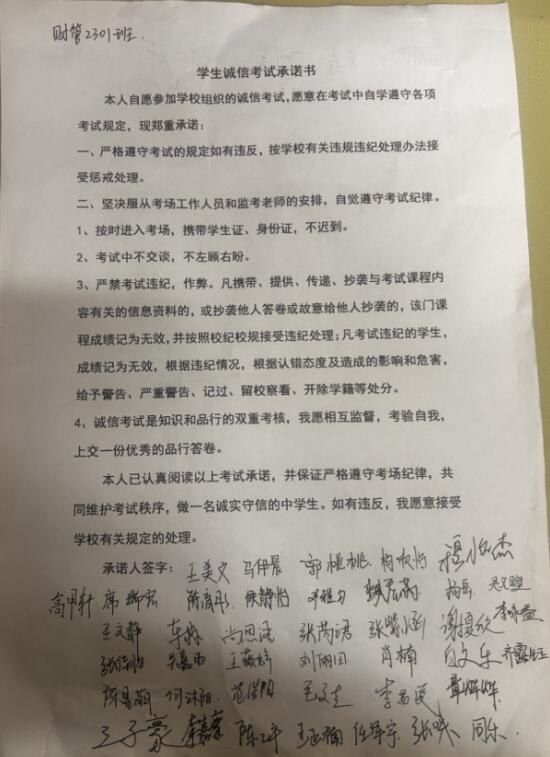 财管2301班
学生诚信考试承诺书
本人自愿参加学校组织的诚信考试,愿意在考试中自学遵守各项
考试规定，现郑重承诺：
一、严格遵守考试的规定如有违反，按学校有关违规违纪处理办法接
受惩戒处理。
二、坚决服从考场工作人员和监考老师的安排，自觉遵守考试纪律。
1、按时进入考场，携带学生证、身份证，不迟到。
2、考试中不交谈，不左顾右盼。
3、严禁考试违纪，作弊。凡携带、提供、传递、抄袭与考试课程内
容有关的信息资料的，或抄袭他人答卷或故意给他人抄袭的，该门课
程成绩记为无效,并按照校纪校规接受违纪处理;凡考试违纪的学生，
成绩记为无效，根据违纪情况，根据认错态度及造成的影响和危害，
给予警告、严重警告、记过、留校察看、开除学籍等处分。
4、诚信考试是知识和品行的双重考核，我愿相互监督，考验自我，
上交一份优秀的品行答卷。
本人已认真阅读以上考试承诺，并保证严格遵守考场纪律，共
同维护考试秩序，做一名诚实守信的中学生。如有违反，我愿意接受
学校有关规定的处理。
承诺人签字： 王美文 马伊晨 郭桃桃
侯静怡
王文静 尚恩浩 张芮涪 张紫涵
刘雨田 肖楠
何沐阳 范浩阳 李昌民
王子豪